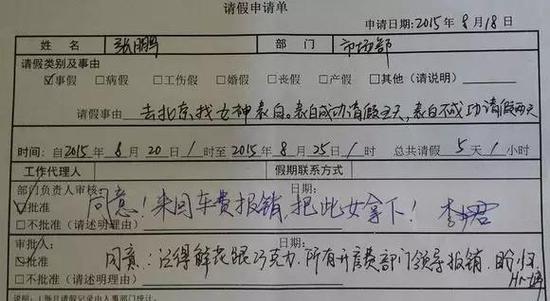 请假申请单
申请日期:2015年8月18日
姓名 张鹏 部门 市场部
请假类别及事由
☑事假 □病假 □工伤假 □婚假 □丧假 □产假 □其他(请说明)
请假事由 去北京找女神表白。表白成功请假五天,表白不成功请假两天
时间:自2015年8月20日1时至2015年8月25日1时 总共请假5天1小时
工作代理人 假期联系方式
部门负责人审核: 日期:
☑批准 同意!来回车费报销,把此女拿下!李君
□不批准(请述明理由)
审批人: 日期:
☑批准 同意:记得鲜花跟巧克力,所有开房费部门领导报销,盼归
□不批准(请述明理由) HR